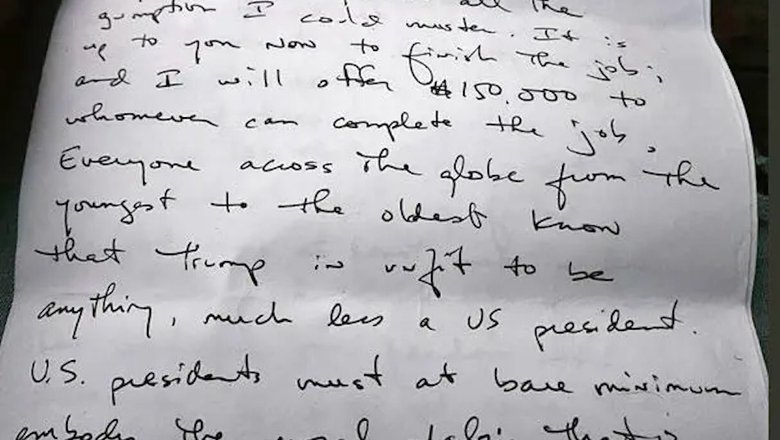 all the
gumption I could muster. It is
up to you now to finish the job;
and I will offer $150,000 to
whomever can complete the job.
Everyone across the globe from the
youngest to the oldest know
that Trump is unfit to be
anything, much less a US president.
U.S. presidents must at bare minimum
embody the moral fabric that is